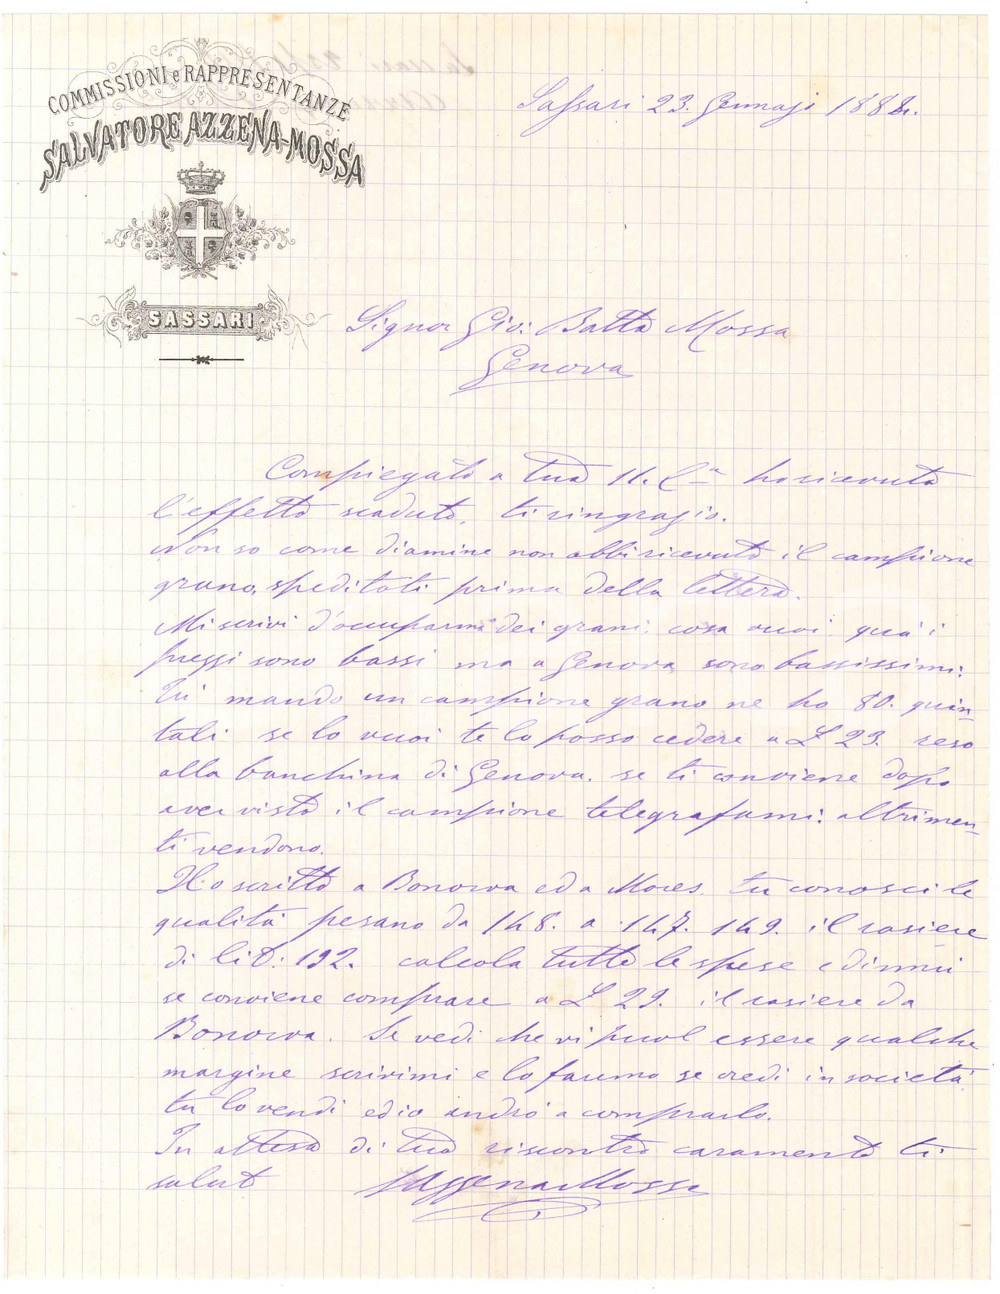 COMMISSIONI e RAPPRESENTANZE
SALVATORE AZZENA-MOSSA
SASSARI
Sassari 23. Gennajo 1888.
Signor Gio: Batta Mossa
Genova
Compiegato a tua 11. ho ricevuto
l'effetto scaduto, ti ringrazio.
Non so come diamine non abbi ricevuto il campione
grano, speditoti prima della lettera.
Mi scrivi d'occuparmi dei grani: cosa vuoi quà i
prezzi sono bassi ma a Genova sono bassissimi:
Ti mando un campione grano ne ho 80. quin-
tali se lo vuoi te lo posso cedere a L 23. reso
alla banchina di Genova. se ti conviene dopo
aver visto il campione telegrafami: altrimen-
ti vendono.
Ho scritto a Bonorva ed a Mores. tu conosci le
qualità pesano da 148. a 147. 149. il rasiere
di lit: 192. calcola tutte le spese e dimmi
se conviene comprare a L 29. il rasiere da
Bonorva. Se vedi che vi puol essere qualche
margine scrivimi e lo faremo se credi in società
tu lo vendi ed io andrò a comprarlo.
In attesa di tuo riscontro caramente ti
saluto SAzzena Mossa